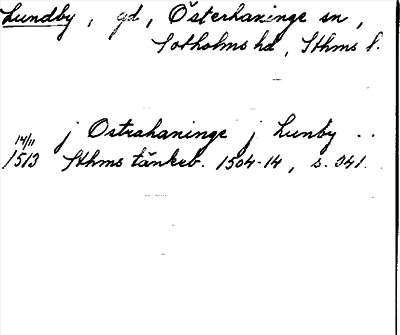 Lundby, gd, Österhaninge sn,
Sotholms hd, Sthms l.
14/11 j Ostrahaninge j Lunby ..
1513 Sthms tänkeb. 1504-14, s. 341.